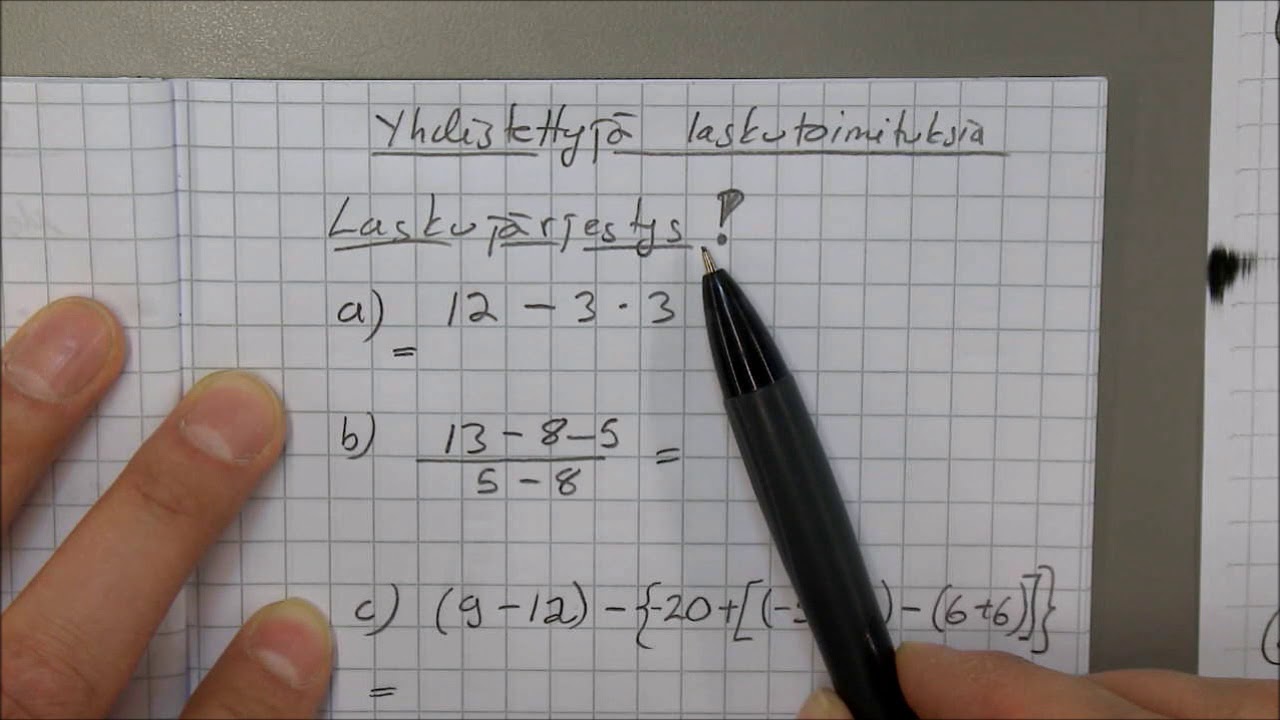 Yhdistettyjä laskutoimituksia
Laskujärjestys!
a) 12 - 3 · 3
=
b) 13 - 8 - 5
5 - 8 =
c) (9 - 12) - {-20 + [(- ) - (6 + 6)]}
=